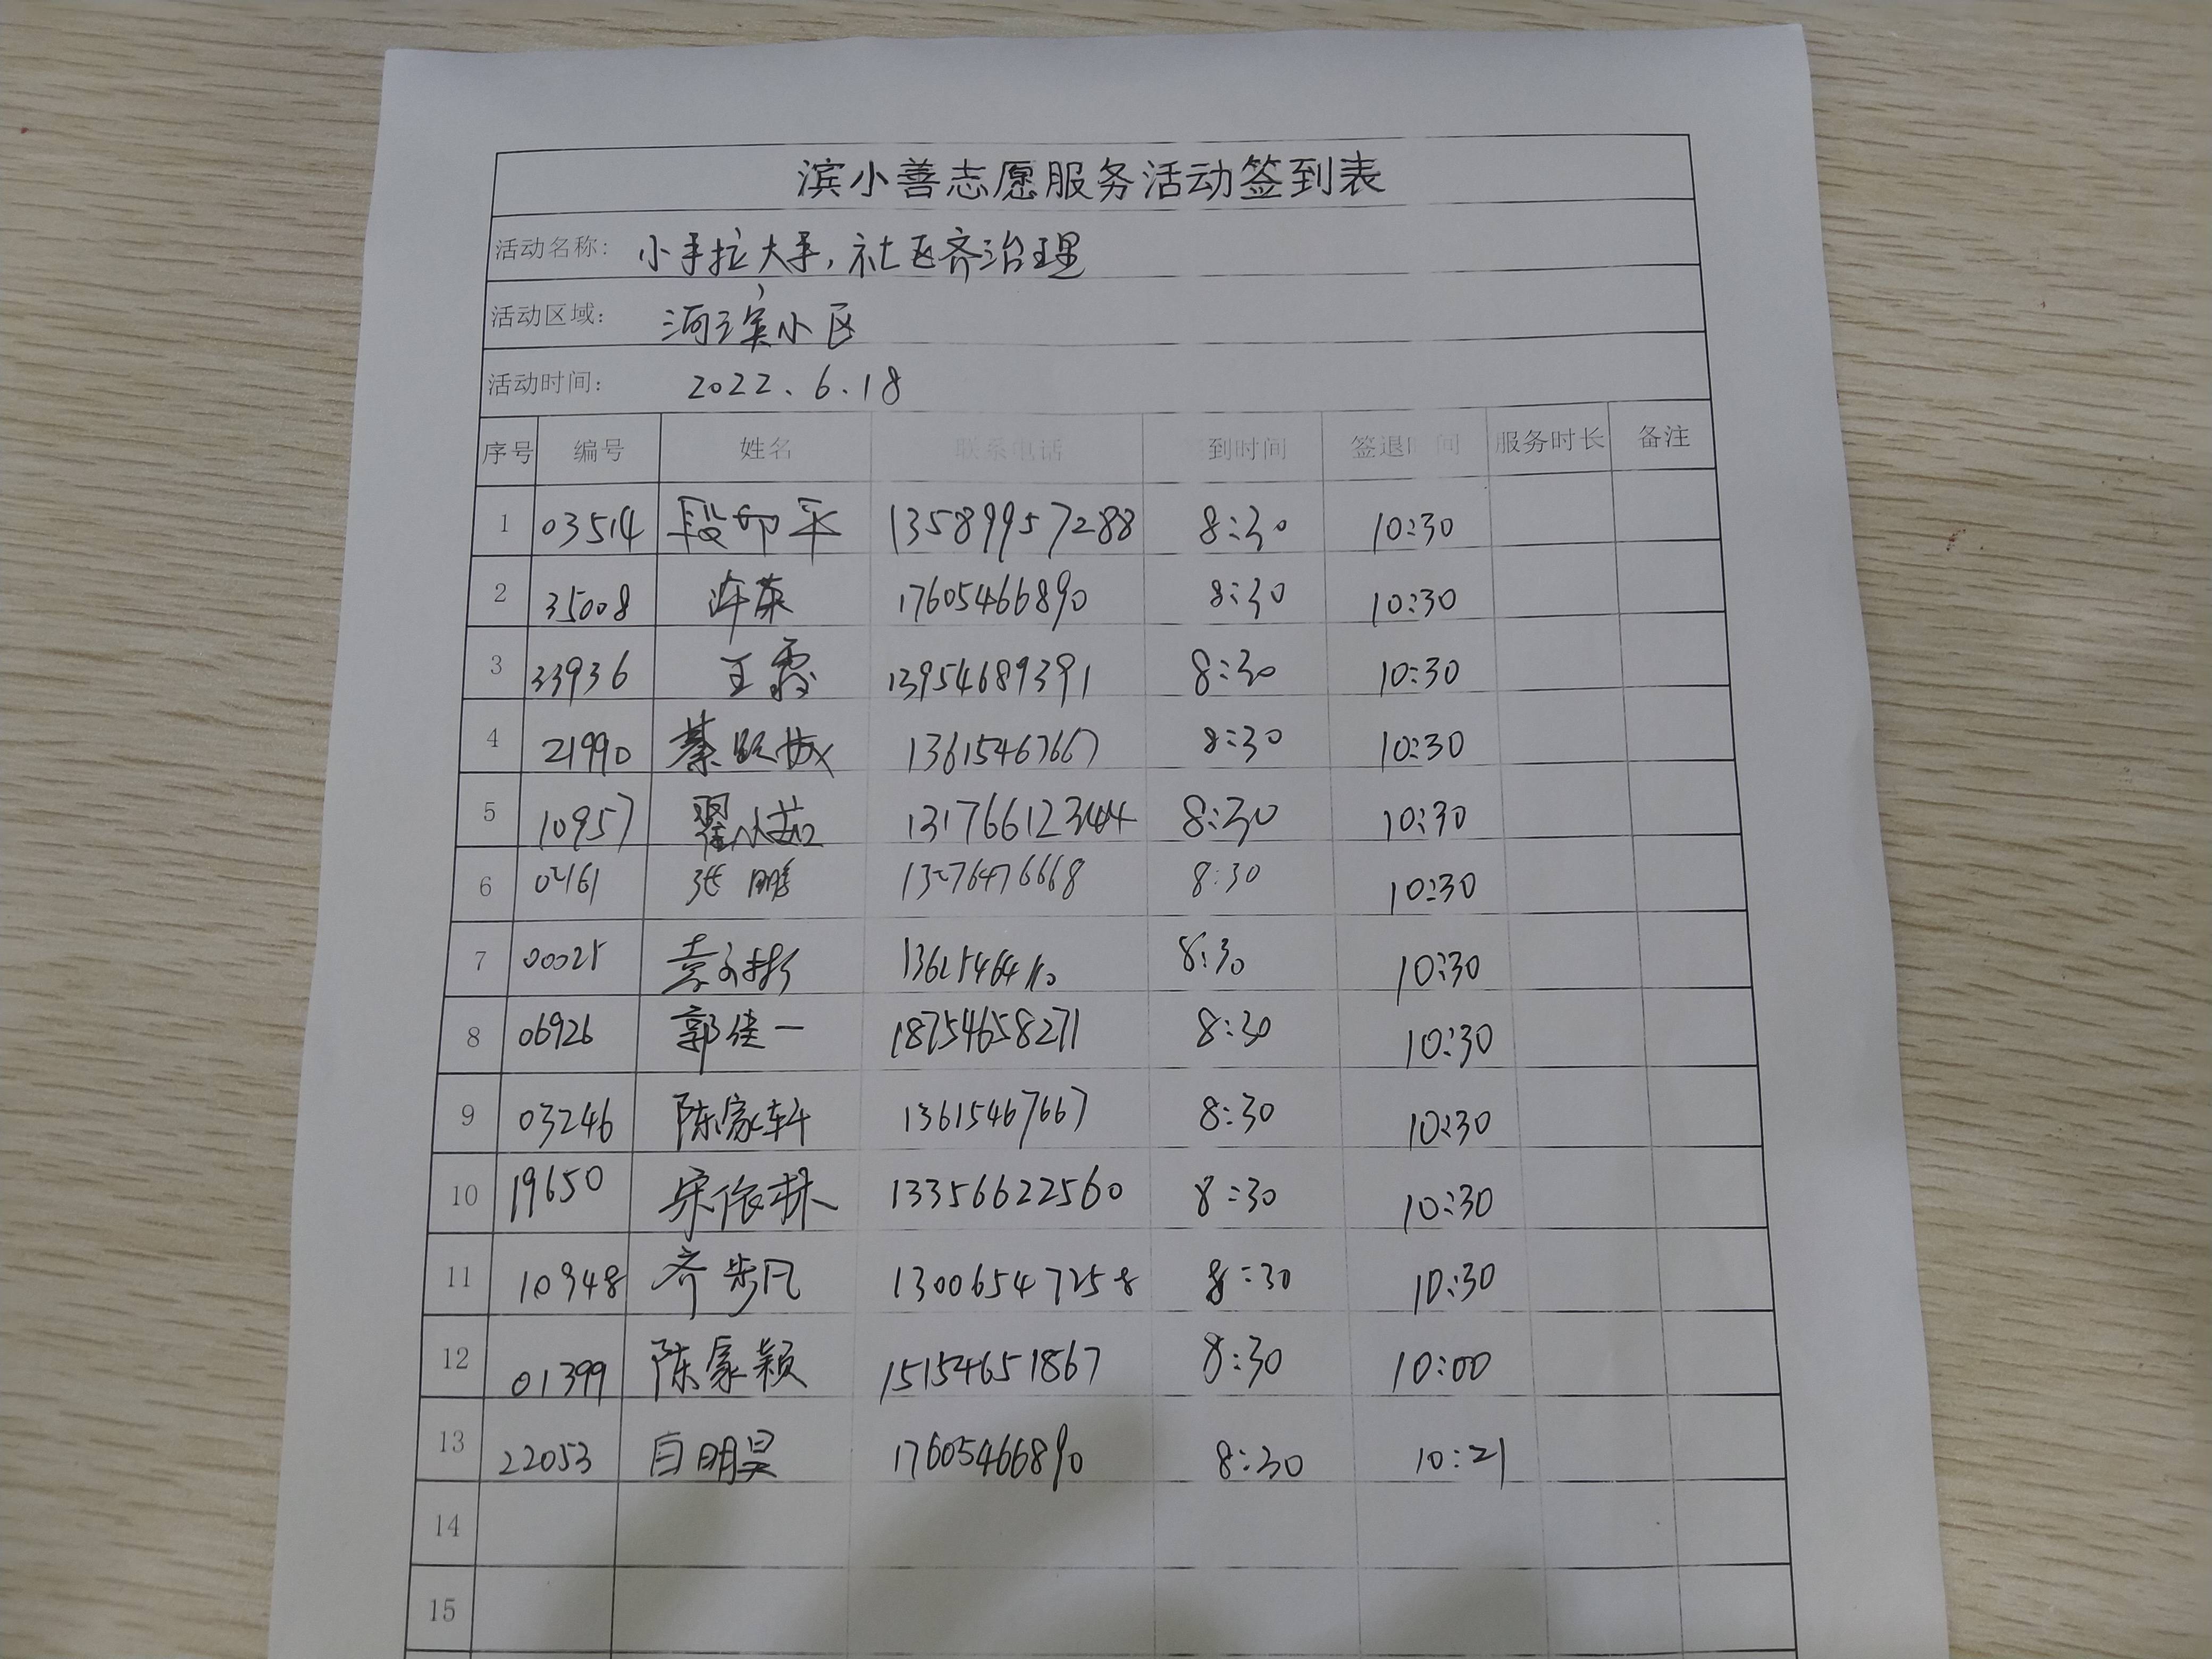 滨小善志愿服务活动签到表
活动名称: 小手拉大手,社区齐治理
活动区域: 河滨小区
活动时间: 2022.6.18
序号 编号 姓名 联系电话 到时间 签退时间 服务时长 备注
1 03514 段印平 13589957288 8:30 10:30
2 35008 许英 17605466890 8:30 10:30
3 33936 王霞 13954689391 8:30 10:30
4 21990 綦 13615467667 8:30 10:30
5 10957 翟小茹 13176612344 8:30 10:30
6 02161 张鹏 13276476668 8:30 10:30
7 00025 袁 8:30 10:30
8 06926 郭佳一 18754658271 8:30 10:30
9 03246 陈家轩 13615467667 8:30 10:30
10 19650 宋依林 13356622560 8:30 10:30
11 10948 齐步凡 13006547258 8:30 10:30
12 01399 陈家颖 15154651867 8:30 10:00
13 22053 自明昊 17605466890 8:30 10:21
14
15